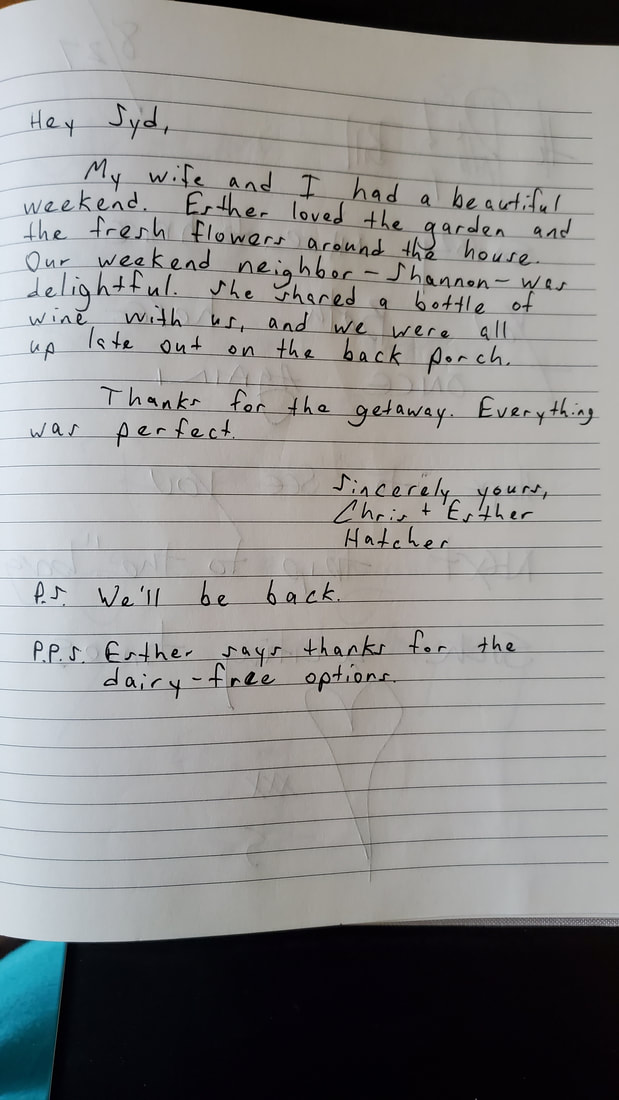 Hey Syd,
My wife and I had a beautiful
weekend. Esther loved the garden and
the fresh flowers around the house.
Our weekend neighbor - Shannon - was
delightful. She shared a bottle of
wine with us, and we were all
up late out on the back porch.
Thanks for the getaway. Everything
was perfect.
Sincerely yours,
Chris + Esther
Hatcher
P.S. We'll be back.
P.P.S. Esther says thanks for the
dairy-free options.